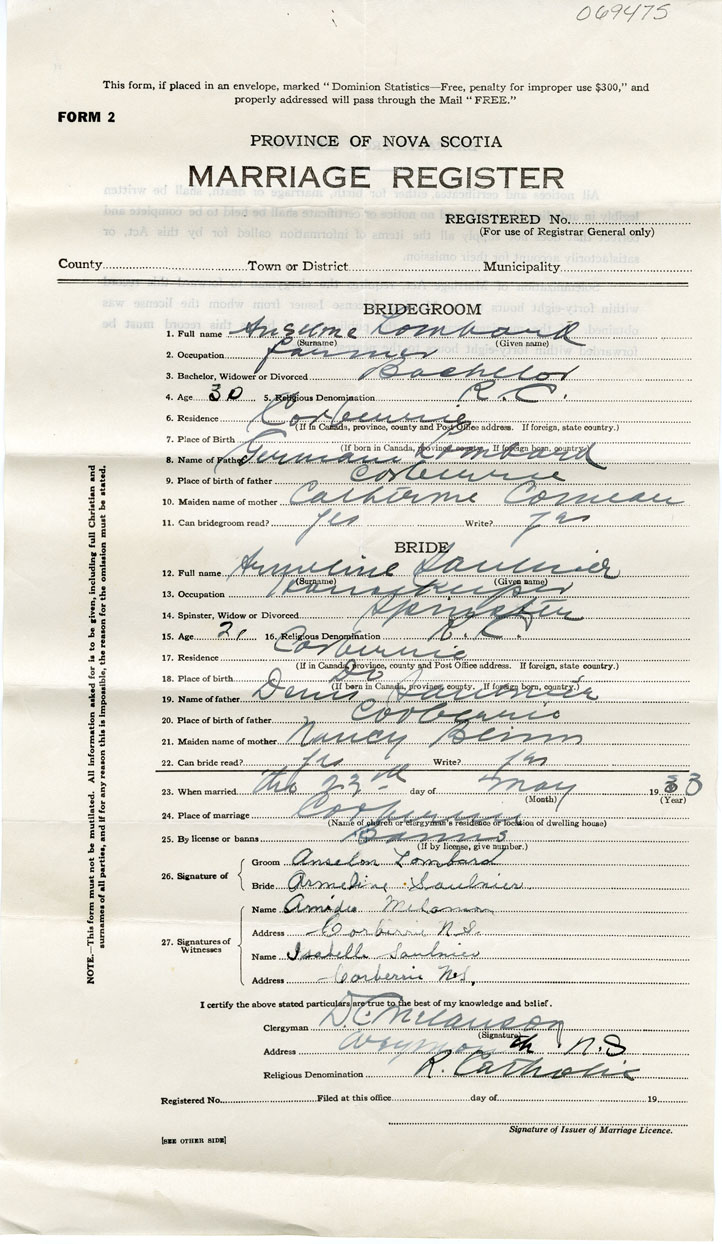 069475
This form, if placed in an envelope, marked "Dominion Statistics—Free, penalty for improper use $300," and
properly addressed will pass through the Mail "FREE."
FORM 2
PROVINCE OF NOVA SCOTIA
MARRIAGE REGISTER
REGISTERED No.
(For use of Registrar General only)
County Town or District Municipality
BRIDEGROOM
1. Full name Anselme Lombard
(Surname) (Given name)
2. Occupation farmer
3. Bachelor, Widower or Divorced Bachelor
4. Age 30 5. Religious Denomination R. C.
6. Residence Corberrie
(If in Canada, province, county and Post Office address. If foreign, state country.)
7. Place of Birth
(If born in Canada, province, county. If foreign born, country)
8. Name of Father Germain Lombard
9. Place of birth of father Corberrie
10. Maiden name of mother Catherine Comeau
11. Can bridegroom read? yes Write? yes
BRIDE
12. Full name Armeline Saulnier
(Surname) (Given name)
13. Occupation Housekeeper
14. Spinster, Widow or Divorced Spinster
15. Age 21 16. Religious Denomination R. C.
17. Residence Corberrie
(If in Canada, province, county and Post Office address. If foreign, state country.)
18. Place of birth Do
(If born in Canada, province, county. If foreign born, country.)
19. Name of father Denis Saulnier
20. Place of birth of father Corberrie
21. Maiden name of mother Nancy
22. Can bride read? yes Write? yes
23. When married the 23rd day of May 1933
(Month) (Year)
24. Place of marriage
(Name of church or clergyman's residence or location of dwelling house)
25. By license or banns Banns
(If by license, give number.)
26. Signature of
Groom Anselm Lombard
Bride Armeline Saulnier
27. Signatures of
Witnesses
Name Amédée Melanson
Address Corberrie N.S.
Name Isabelle Saulnier
Address Corberrie N.S,
I certify the above stated particulars are true to the best of my knowledge and belief.
Clergyman D. C. Melanson
(Signature)
Address Weymouth N.S
Religious Denomination R. Catholic
Registered No. Filed at this office day of 19
Signature of Issuer of Marriage Licence.
[SEE OTHER SIDE]
NOTE.—This form must not be mutilated. All information asked for is to be given, including full Christian and
surnames of all parties, and if for any reason this is impossible, the reason for the omission must be stated.